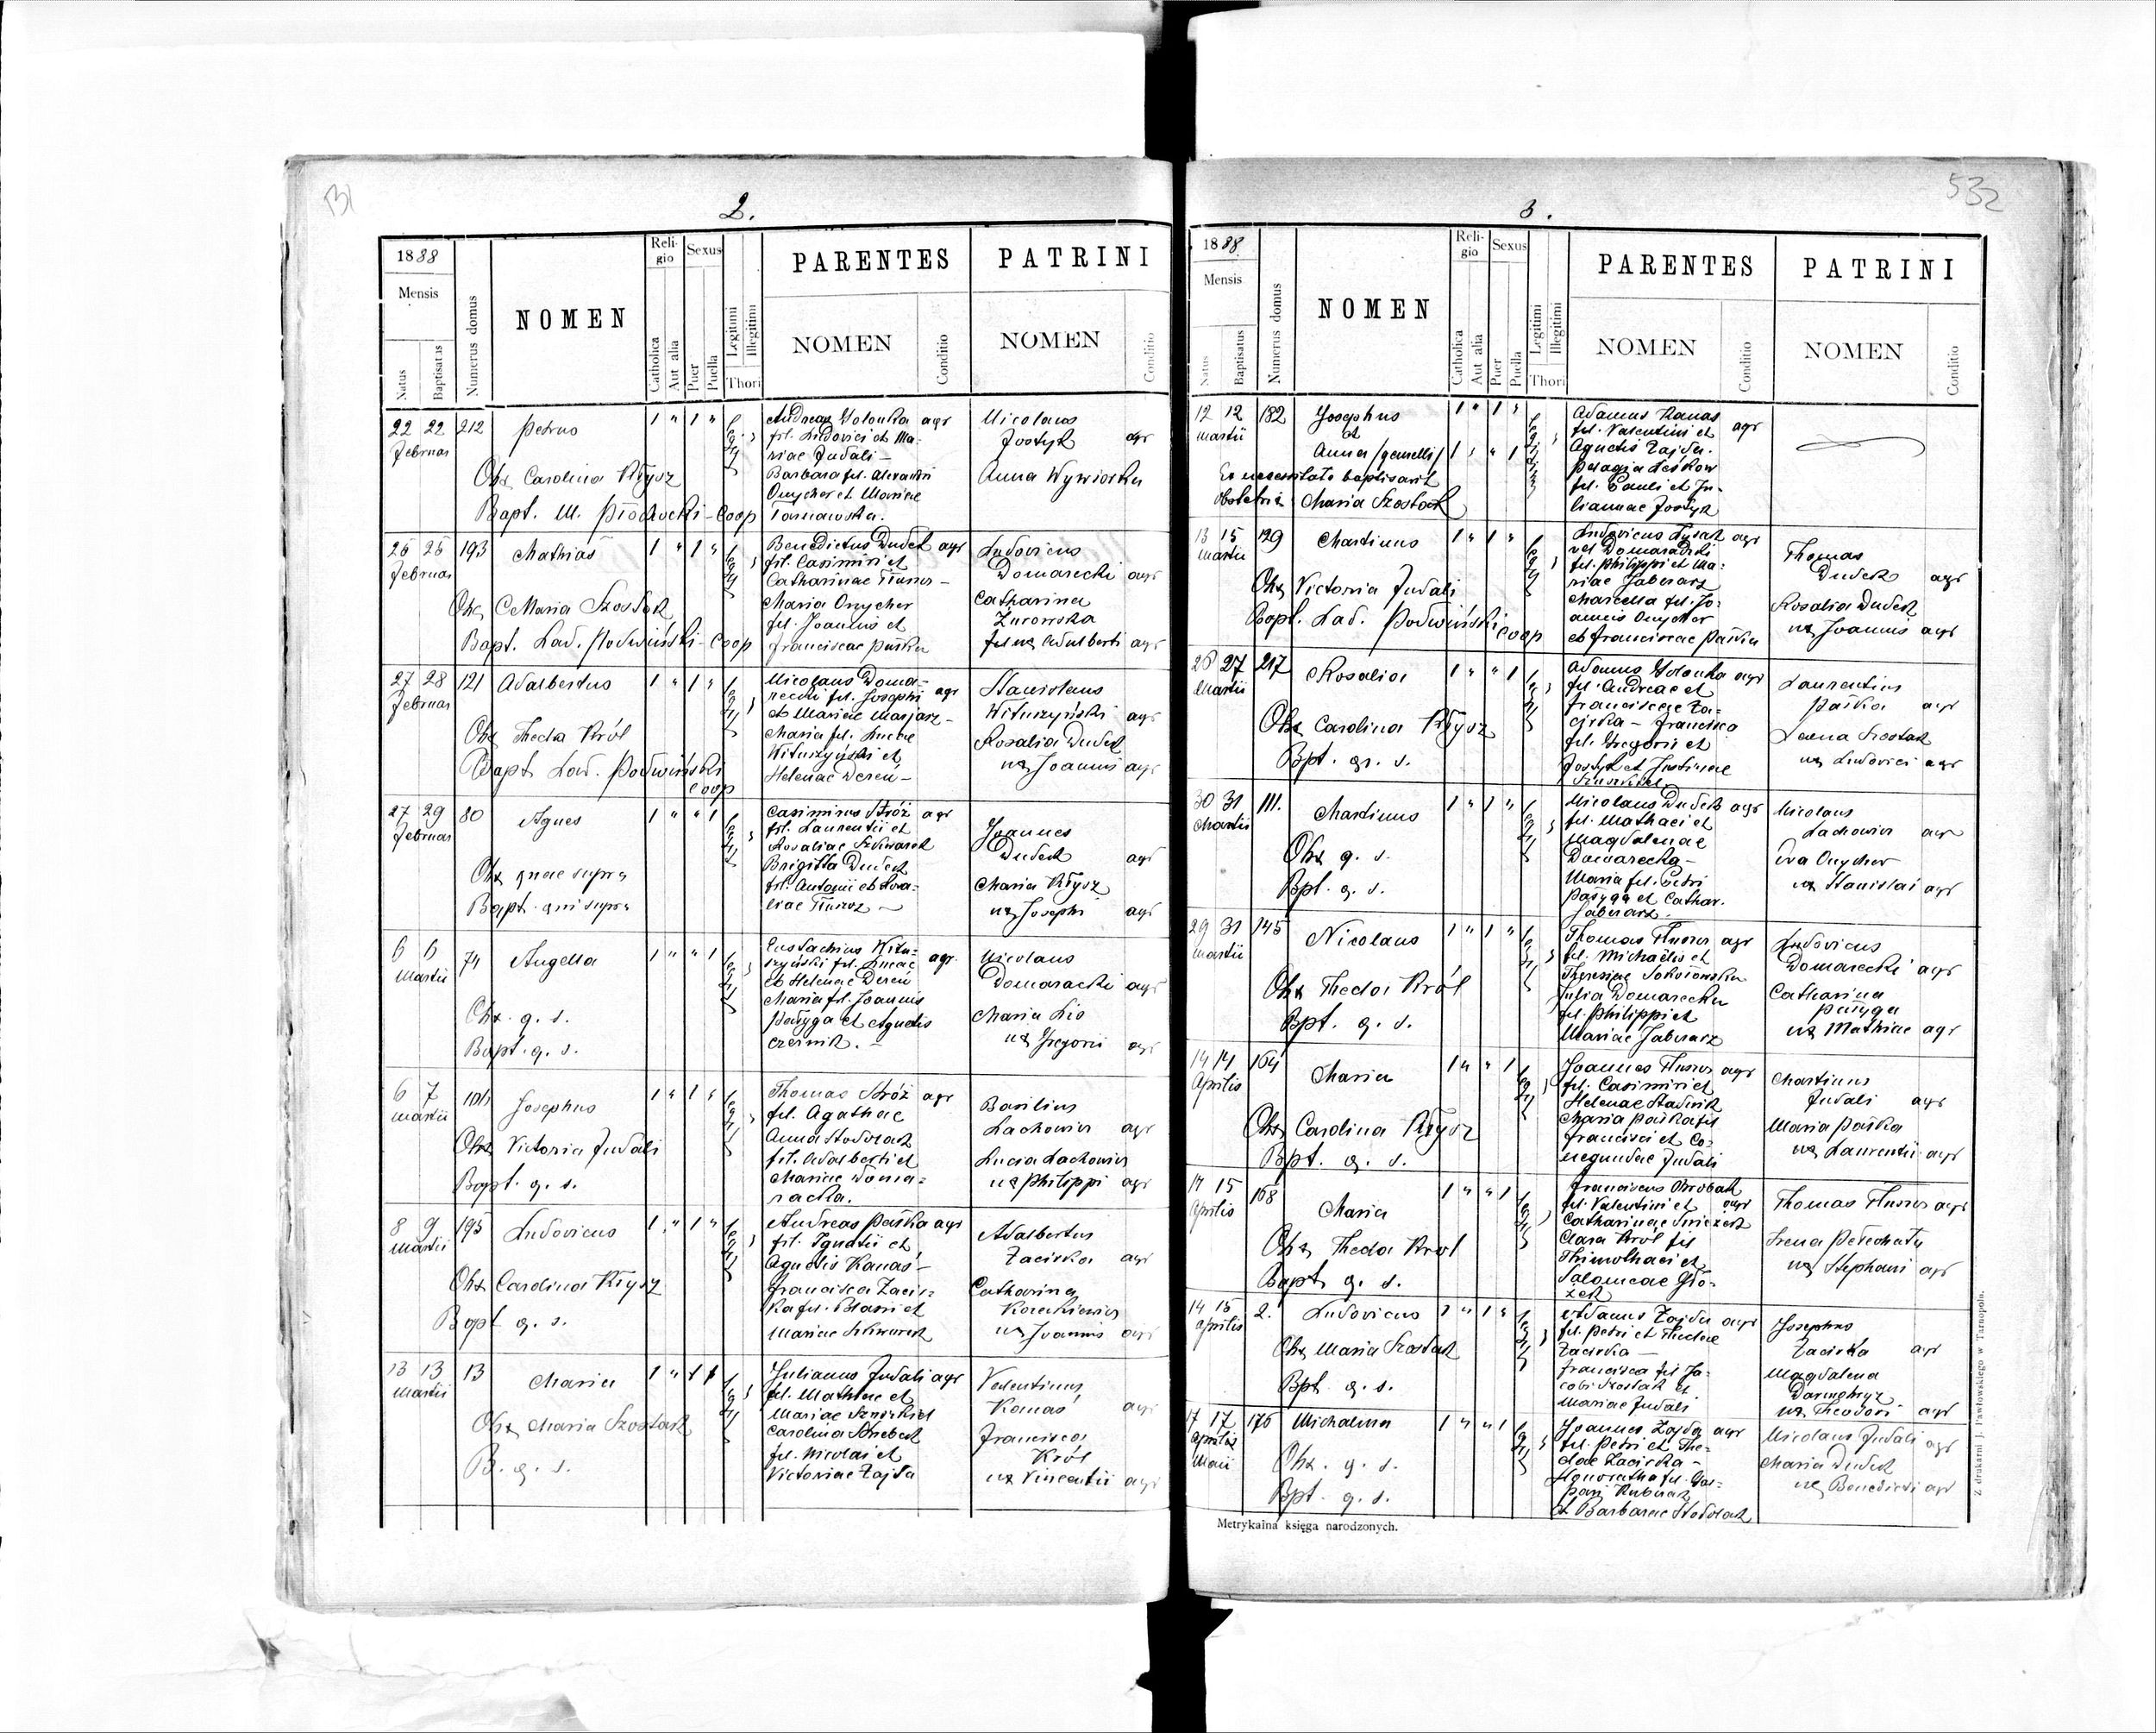 2.
1888
Mensis
Natus
Baptisatus
Numerus domus
NOMEN
Reli-
gio
Catholica
Aut alia
Sexus
Puer
Puella
Legitimi
Illegitimi
Thori
PARENTES
NOMEN
Conditio
PATRINI
NOMEN
Conditio
22 22 212 Petrus 1 " 1 "
Februar
Obx Carolina Kłysz
Bapt. M. Płochocki - Coop
Andreas Hołonka agr
fil. Ludovici et Ma-
riae Judali -
Barbara fil. Alexandri
Onycher et Mariae
Tarnawska.
Nicolaus
Jostyk agr
Anna Wywiorka
25 25 193 Mathias 1 " 1 "
Februar
Obx Maria Szostak
Bapt. Lad. Podwiński - Coop
Benedictus Dudek agr
fil. Casimiri et
Catharinae Tłuszcz -
Maria Onycher
fil. Joannis et
Franciscae Paśka
Ludovicus
Domarecki agr
Catharina
Żurowska
Adalberti agr
27 28 121 Adalbertus 1 " 1 "
Februar
Obx Thecla Król
Bapt Lad. Podwiński
Coop
Nicolaus Doma-
recki fil. Josephi agr
et Mariae Marjasz -
Maria fil. Lucae
Wituszyński et
Helenae Dereń -
Stanislaus
Wituszyński agr
Rosalia Dudek
ux Joannis agr
27 29 80 Agnes 1 " " 1
Februar
Obx quae supra
Bapt. qui supra
Casimirus Stróż agr
fil. Laurentii et
Rosaliae Szkwarek
Brigitta Dudek
fil. Antonii et Rosa-
liae Tłuszcz -
Joannes
Dudek agr
Maria Kłysz
ux Josephi agr
6 6 74 Angella 1 " " 1
Martii
Obx. q. s.
Bapt. q. s.
Eustachius Witu-
szyński fil. Lucae agr
et Helenae Dereń
Maria fil. Joannis
Pałyga et Agnetis
Cześnik. -
Nicolaus
Domaracki agr
Maria Lis
ux Gregorii agr
6 7 Josephus 1 " 1 "
Martii
Obx Victoria Judali
Bapt. q. s.
Thomas Stróż agr
fil. Agathae
Anna Stodolak
fil. Adalberti et
Mariae Doma-
racka.
Basilius
Lachowicz agr
Lucia Lachowicz
ux Philippi agr
8 9 195 Ludovicus 1 " 1 "
Martii
Obx Carolina Kłysz
Bapt q. s.
Andreas Paśka agr
fil. Ignatii et
Agnetis Kanas -
Francisca Zacir-
ka fil. Blasii et
Mariae Szkwarek
Adalbertus
Zacirka agr
Catharina
ux Joannis agr
13 13 13 Maria
Martii
Obx Maria Szostak
B. q. s.
Julianus Judali agr
fil. Mathiae et
Mariae
Carolina
fil. Nicolai et
Victoriae Zajda
Valentinus
Kanas agr
Francisca
Król
ux Vincentii agr
3.
532
1888
Mensis
Natus
Baptisatus
Numerus domus
NOMEN
Reli-
gio
Catholica
Aut alia
Sexus
Puer
Puella
Legitimi
Illegitimi
Thori
PARENTES
NOMEN
Conditio
PATRINI
NOMEN
Conditio
12 12 182 Josephus 1 " 1 "
Martii et
Anna /gemelli/ 1 " " 1
Ex necessitate baptisavit
obstetrix Maria Szostak
Adamus Kanas
fil. Valentini et agr
Agnetis Zajda.
Pelagia Leśkow
fil. Pauli et Ju-
liannae Jostyk
13 15 129 Martinus 1 " 1 "
Martii
Obx Victoria Judali
Bapt. Lad. Podwiński
Coop
Ludovicus Łysak agr
vel Domaradzki
fil. Philippi et Ma-
riae Jaberasz
Marcella fil. Jo-
annis Onycher
et Franciscae Paśka
Thomas
Dudek agr
Rosalia Dudek
ux Joannis agr
26 27 217 Rosalia 1 " " 1
Martii
Obx Carolina Kłysz
Bpt. q. s.
Adamus Hołonka agr
fil. Andreae et
Franciscae Za-
cirka - Francisca
fil. Gregorii et
Jostyk et Justinae
Laurentius
Paśka agr
Szostak
ux Ludovici agr
30 31 111. Martinus 1 " 1 "
Martii
Obx q. s.
Bpt. q. s.
Nicolaus Dudek agr
fil. Mathaei et
Magdalenae
Domarecka -
Maria fil. Petri
Pałyga et Cathar.
Jaberasz -
Nicolaus
Lachowicz agr
Eva Onycher
ux Stanislai agr
29 31 145 Nicolaus 1 " 1 "
Martii
Obx Thecla Król
Bpt. q. s.
Thomas Tłuszcz agr
fil. Michaelis et
Theresiae Sokołowska
Julia Domarecka
fil. Philippi et
Mariae Jaberasz
Ludovicus
Domarecki agr
Catharina
Pałyga
ux Mathiae agr
14 14 164 Maria 1 " " 1
Aprilis
Obx Carolina Kłysz
Bpt. q. s.
Joannes Tłuszcz agr
fil. Casimiri et
Helenae Stadnik
Maria Paśka fil
Francisci et Co-
negundae Judali
Martinus
Judali agr
Maria Paśka
ux Laurentii agr
14 15 168 Maria 1 " " 1
Aprilis
Obx Thecla Krol
Bapt q. s.
Franciscus Chrobak
fil. Valentini et agr
Catharinae
Clara Król fil
Thimothaei et
Salomeae Gło-
zek
Thomas Tłuszcz agr
Irena Pełechaty
ux Stephani agr
14 15 2. Ludovicus 1 " 1 "
Aprilis
Obx Maria Szostak
Bpt. q. s.
Adamus Zajda agr
fil. Petri et Theclae
Zacirka -
Francisca fil Ja-
cobi Szostak et
Mariae Judali
Josephus
Zacirka agr
Magdalena
ux Theodori agr
17 17 176 Michalina 1 " " 1
Aprilis
Maii
Obx. q. s.
Bpt. q. s.
Joannes Zajda agr
fil. Petri et The-
clae Zacirka -
Honoratha fil. Gas-
pari
et Barbarae Stodolak
Nicolaus Judali agr
Maria Dudek
ux Benedicti agr
Metrykalna księga narodzonych.
Z drukarni J. Pawłowskiego w Tarnopolu.